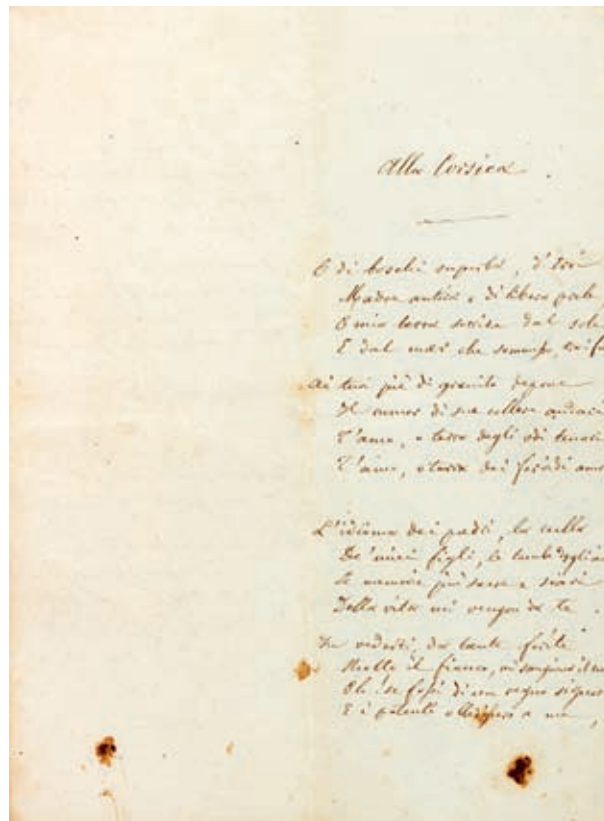 Alla Corsica
O di boschi superba, d'
Madre antica e di libera prole
O mia terra sorrisa dal sole
E dal mar che
Ai tuoi piè di granito depone
Il rumor di sue collere
T'amo, o terra degli odi tenaci
T'amo, o terra dei fervidi amo
L'idioma dei padri, la culla
De' miei figli, le tombe degli
Le memorie più sacre e soavi
Della vita mi vengon da te.
In vederti da tante ferite
Rotto il fianco, mi sanguina il
Oh! se fossi di un regno signor
E i potenti a me,